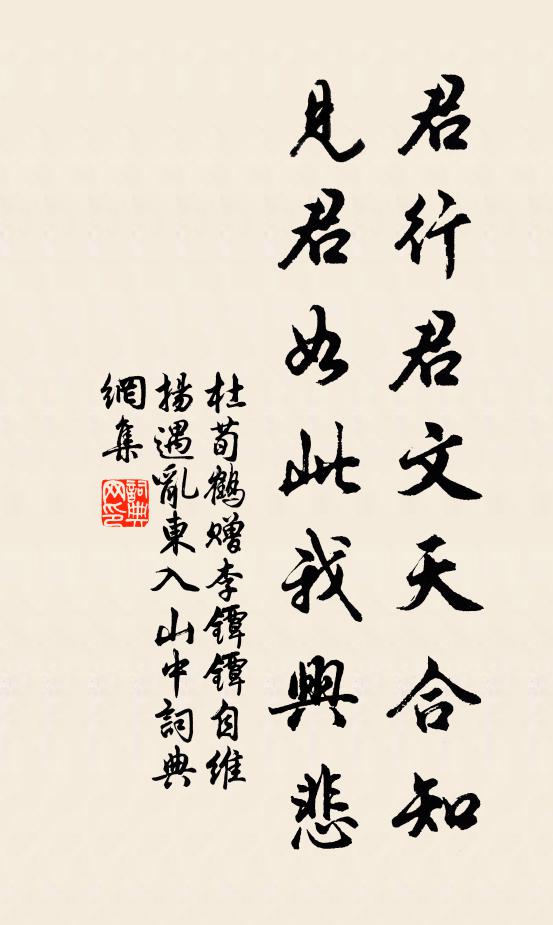 君行君文天合知
見君如此我興悲
杜荀鶴贈李鐔鐔自維
揚遇亂東入山中詞典
網集
詞典
网印